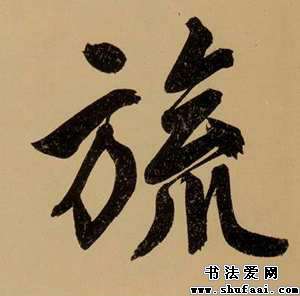 旒
书法爱网
www.shufaai.com